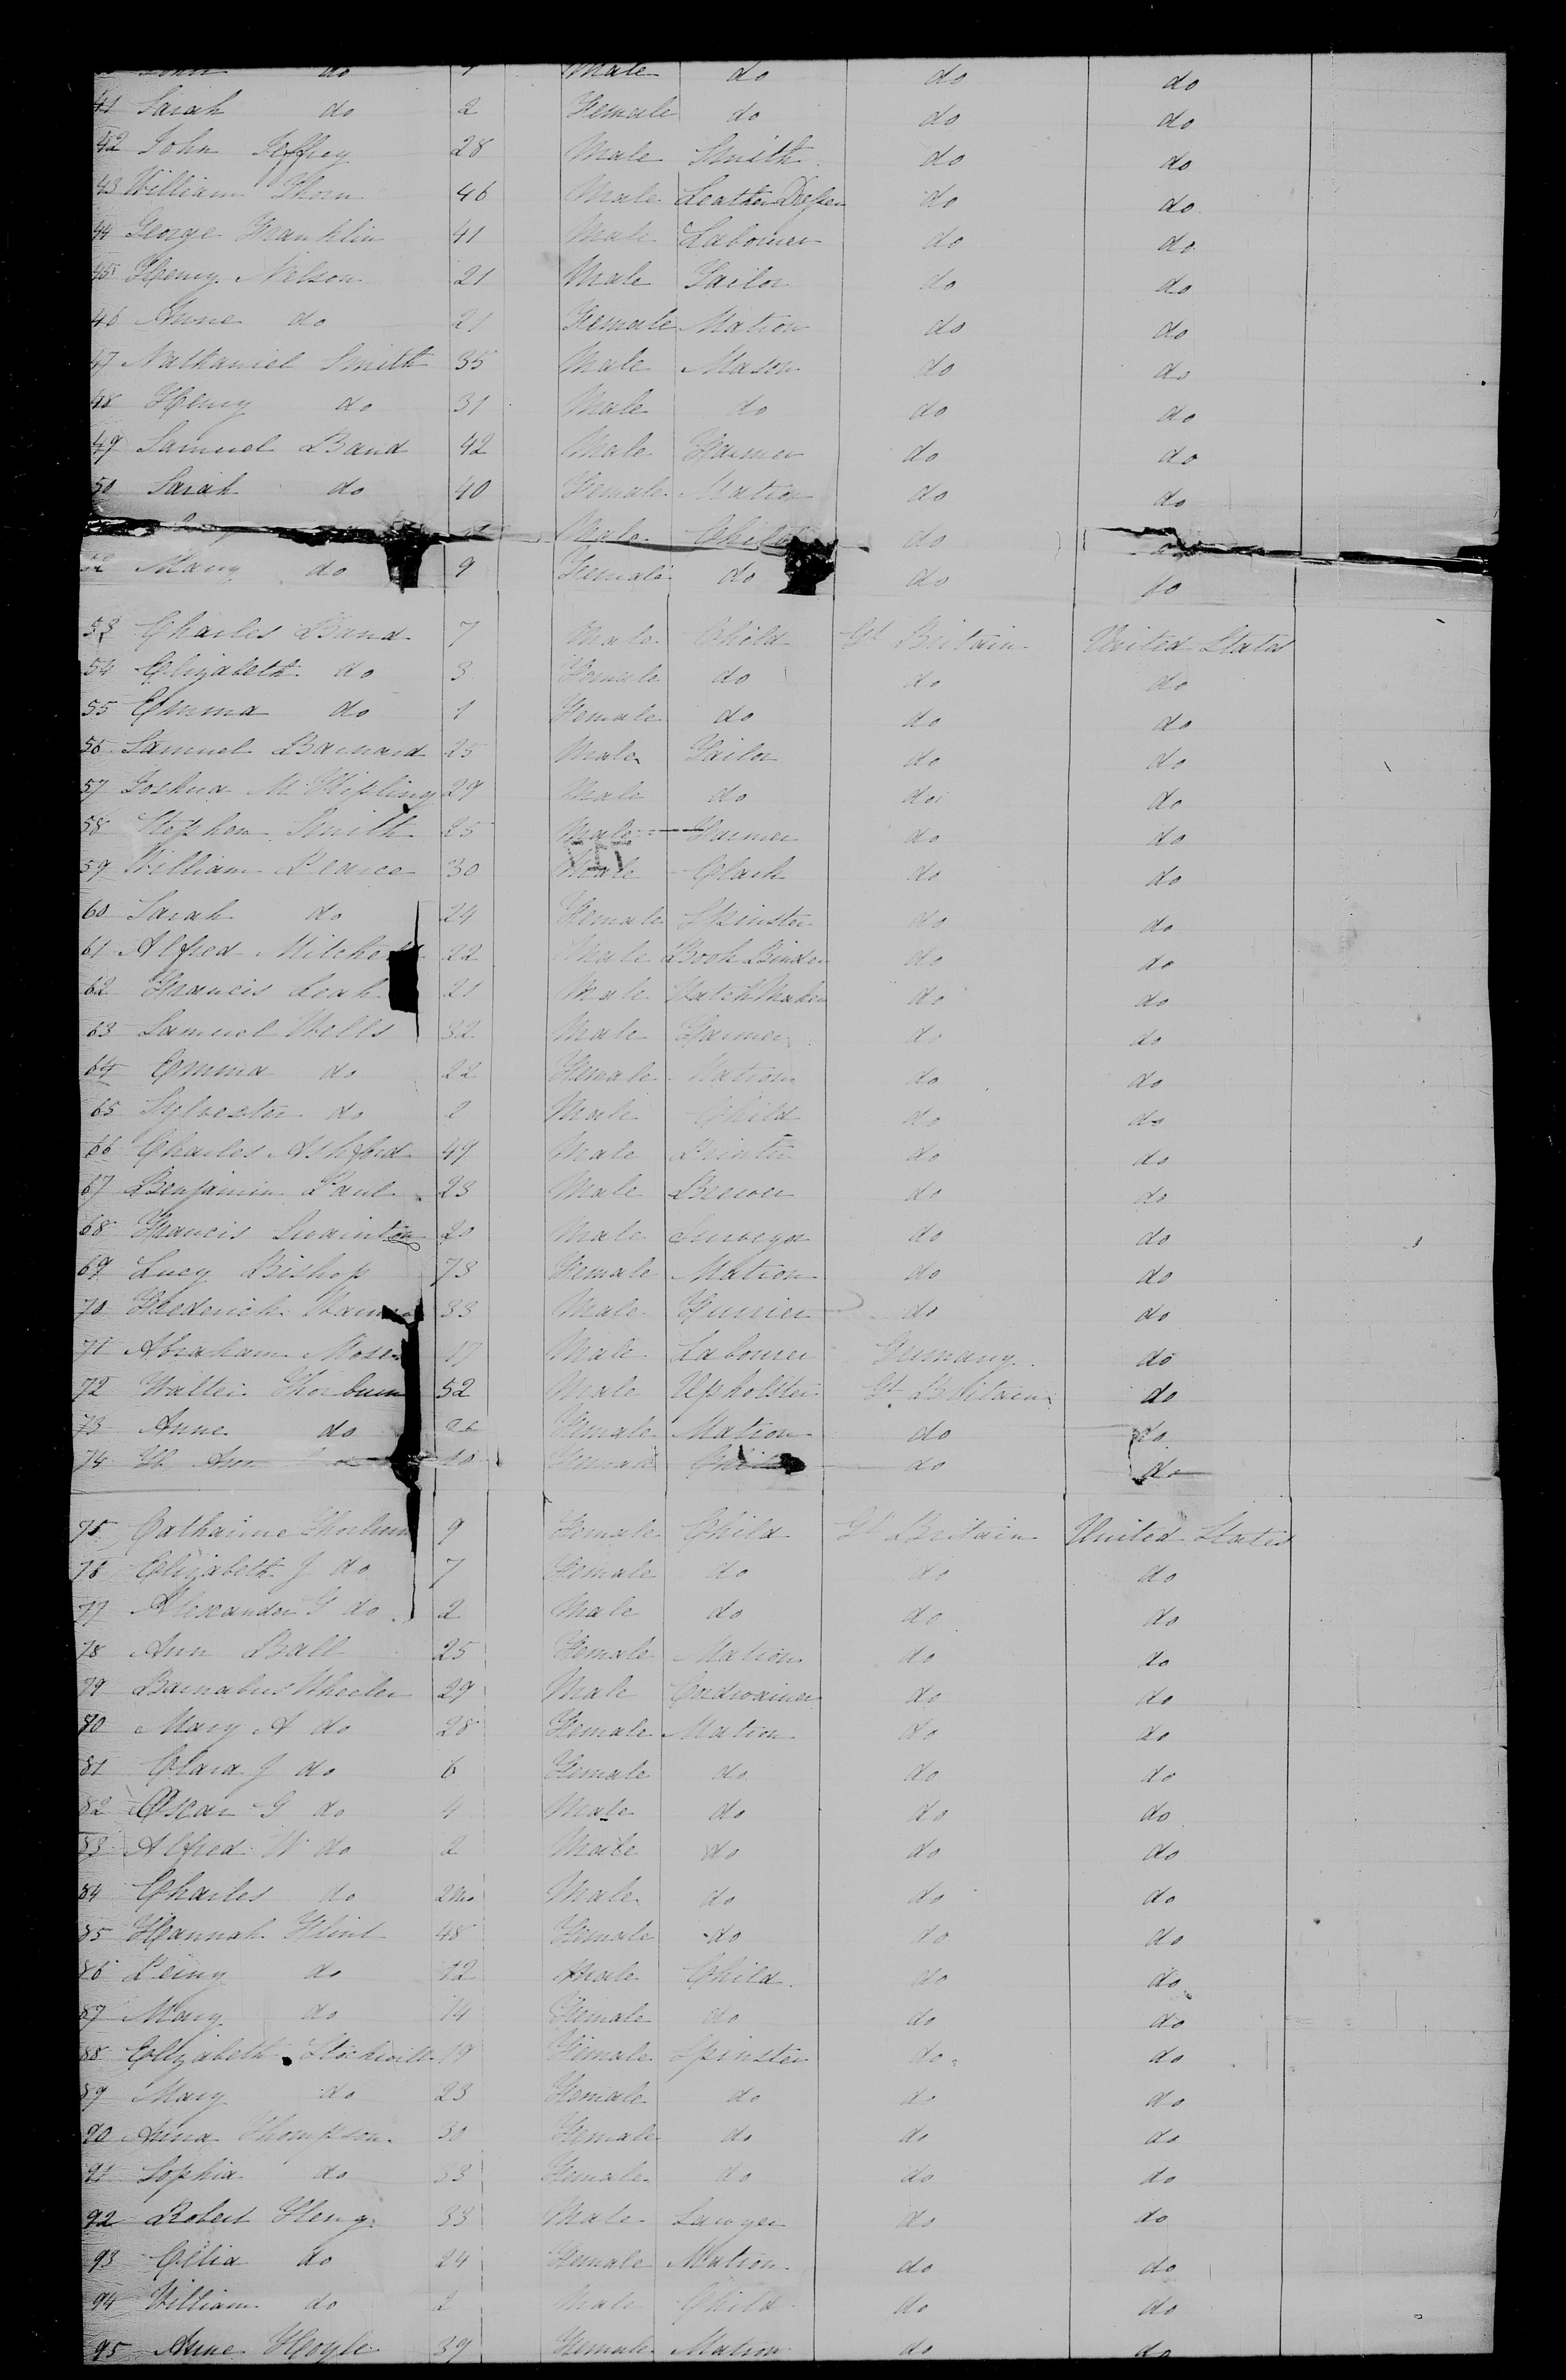 John do Male do do do
41 Sarah do 2 Female do do do
42 John Jeffrey 28 Male Smith do do
43 William Thorn 46 Male Leather Dresser do do
44 George Franklin 41 Male Labourer do do
45 Henry Nelson 21 Male Tailor do do
46 Anne do 21 Female Matron do do
47 Nathaniel Smith 35 Male Mason do do
48 Henry do 31 Male do do do
49 Samuel Band 42 Male Farmer do do
50 Sarah do 40 Female Matron do do
Male Child do
52 Mary do 9 Female do do do
53 Charles Band 7 Male Child Gt Britain United States
54 Elizabeth do 3 Female do do do
55 Emma do 1 Female do do do
56 Samuel Barnard 25 Male Tailor do do
57 Joshua M Kipling 29 Male do do do
58 Stephen Smith 25 Male Farmer do do
59 William Pearce 30 Male Clark do do
60 Sarah do 24 Female Spinster do do
61 Alfred 22 Male Book Binder do do
62 Francis Leah 21 Male Watch Maker do do
63 Samuel Wells 32 Male Farmer do do
64 Emma do 22 Female Matron do do
65 Sylvester do 2 Male Child do do
66 Charles Ashford 49 Male Printer do do
67 Benjamin Paul 23 Male Brewer do do
68 Francis Swainton 20 Male Surveyor do do
69 Lucy Bishop 73 Female Matron do do
70 Frederick 33 Male Furrier do do
71 Abraham Moses 17 Male Labourer Germany do
72 Walter Thorburn 52 Male Upholster Gt Britain do
73 Anne do Female Matron do do
74 Ann 10 Female Child do do
75 Catharine Thorburn 9 Female Child Gt Britain United States
76 Elizabeth J do 7 Female do do do
77 Alexander G do 2 Male do do do
78 Ann Ball 25 Female Matron do do
79 Barnabus Wheeler 29 Male Cordwainer do do
80 Mary A do 28 Female Matron do do
81 Clara J do 6 Female do do do
82 Oscar G do 4 Male do do do
83 Alfred W do 2 Male do do do
84 Charles do 2 Mo Male do do do
85 Hannah Flint 48 Female do do do
86 Percy do 12 Male Child do do
87 Mary do 14 Female do do do
88 Elizabeth Stockwill 19 Female Spinster do do
89 Mary do 23 Female do do do
90 Anna Thompson 30 Female do do do
91 Sophia do 33 Female do do do
92 Robert Henry 33 Male Lawyer do do
93 Celia do 24 Female Matron do do
94 William do 2 Male Child do do
95 Anne Hoyle 39 Female Matron do do